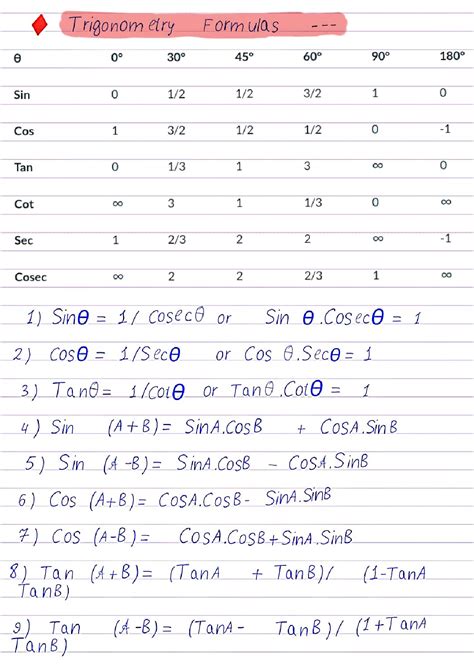 Trigonometry Formulas ---
θ 0° 30° 45° 60° 90° 180°
Sin 0 1/2 1/2 3/2 1 0
Cos 1 3/2 1/2 1/2 0 -1
Tan 0 1/3 1 3 ∞ 0
Cot ∞ 3 1 1/3 0 ∞
Sec 1 2/3 2 2 ∞ -1
Cosec ∞ 2 2 2/3 1 ∞
1) Sinθ = 1/ cosecθ or Sin θ.Cosecθ = 1
2) cosθ = 1/Secθ or Cos θ.Secθ = 1
3) Tanθ = 1/cotθ or Tanθ.Cotθ = 1
4) Sin (A+B) = SinA.CosB + CosA.SinB
5) Sin (A -B) = SinA.CosB - CosA.SinB
6) Cos (A+B) = CosA.CosB- SinA.SinB
7) Cos (A-B) = CosA.CosB+SinA.SinB
8) Tan (A+B) = (TanA + TanB)/ (1-TanA
TanB)
9) Tan (A-B) = (TanA- TanB)/ (1+TanA
TanB)